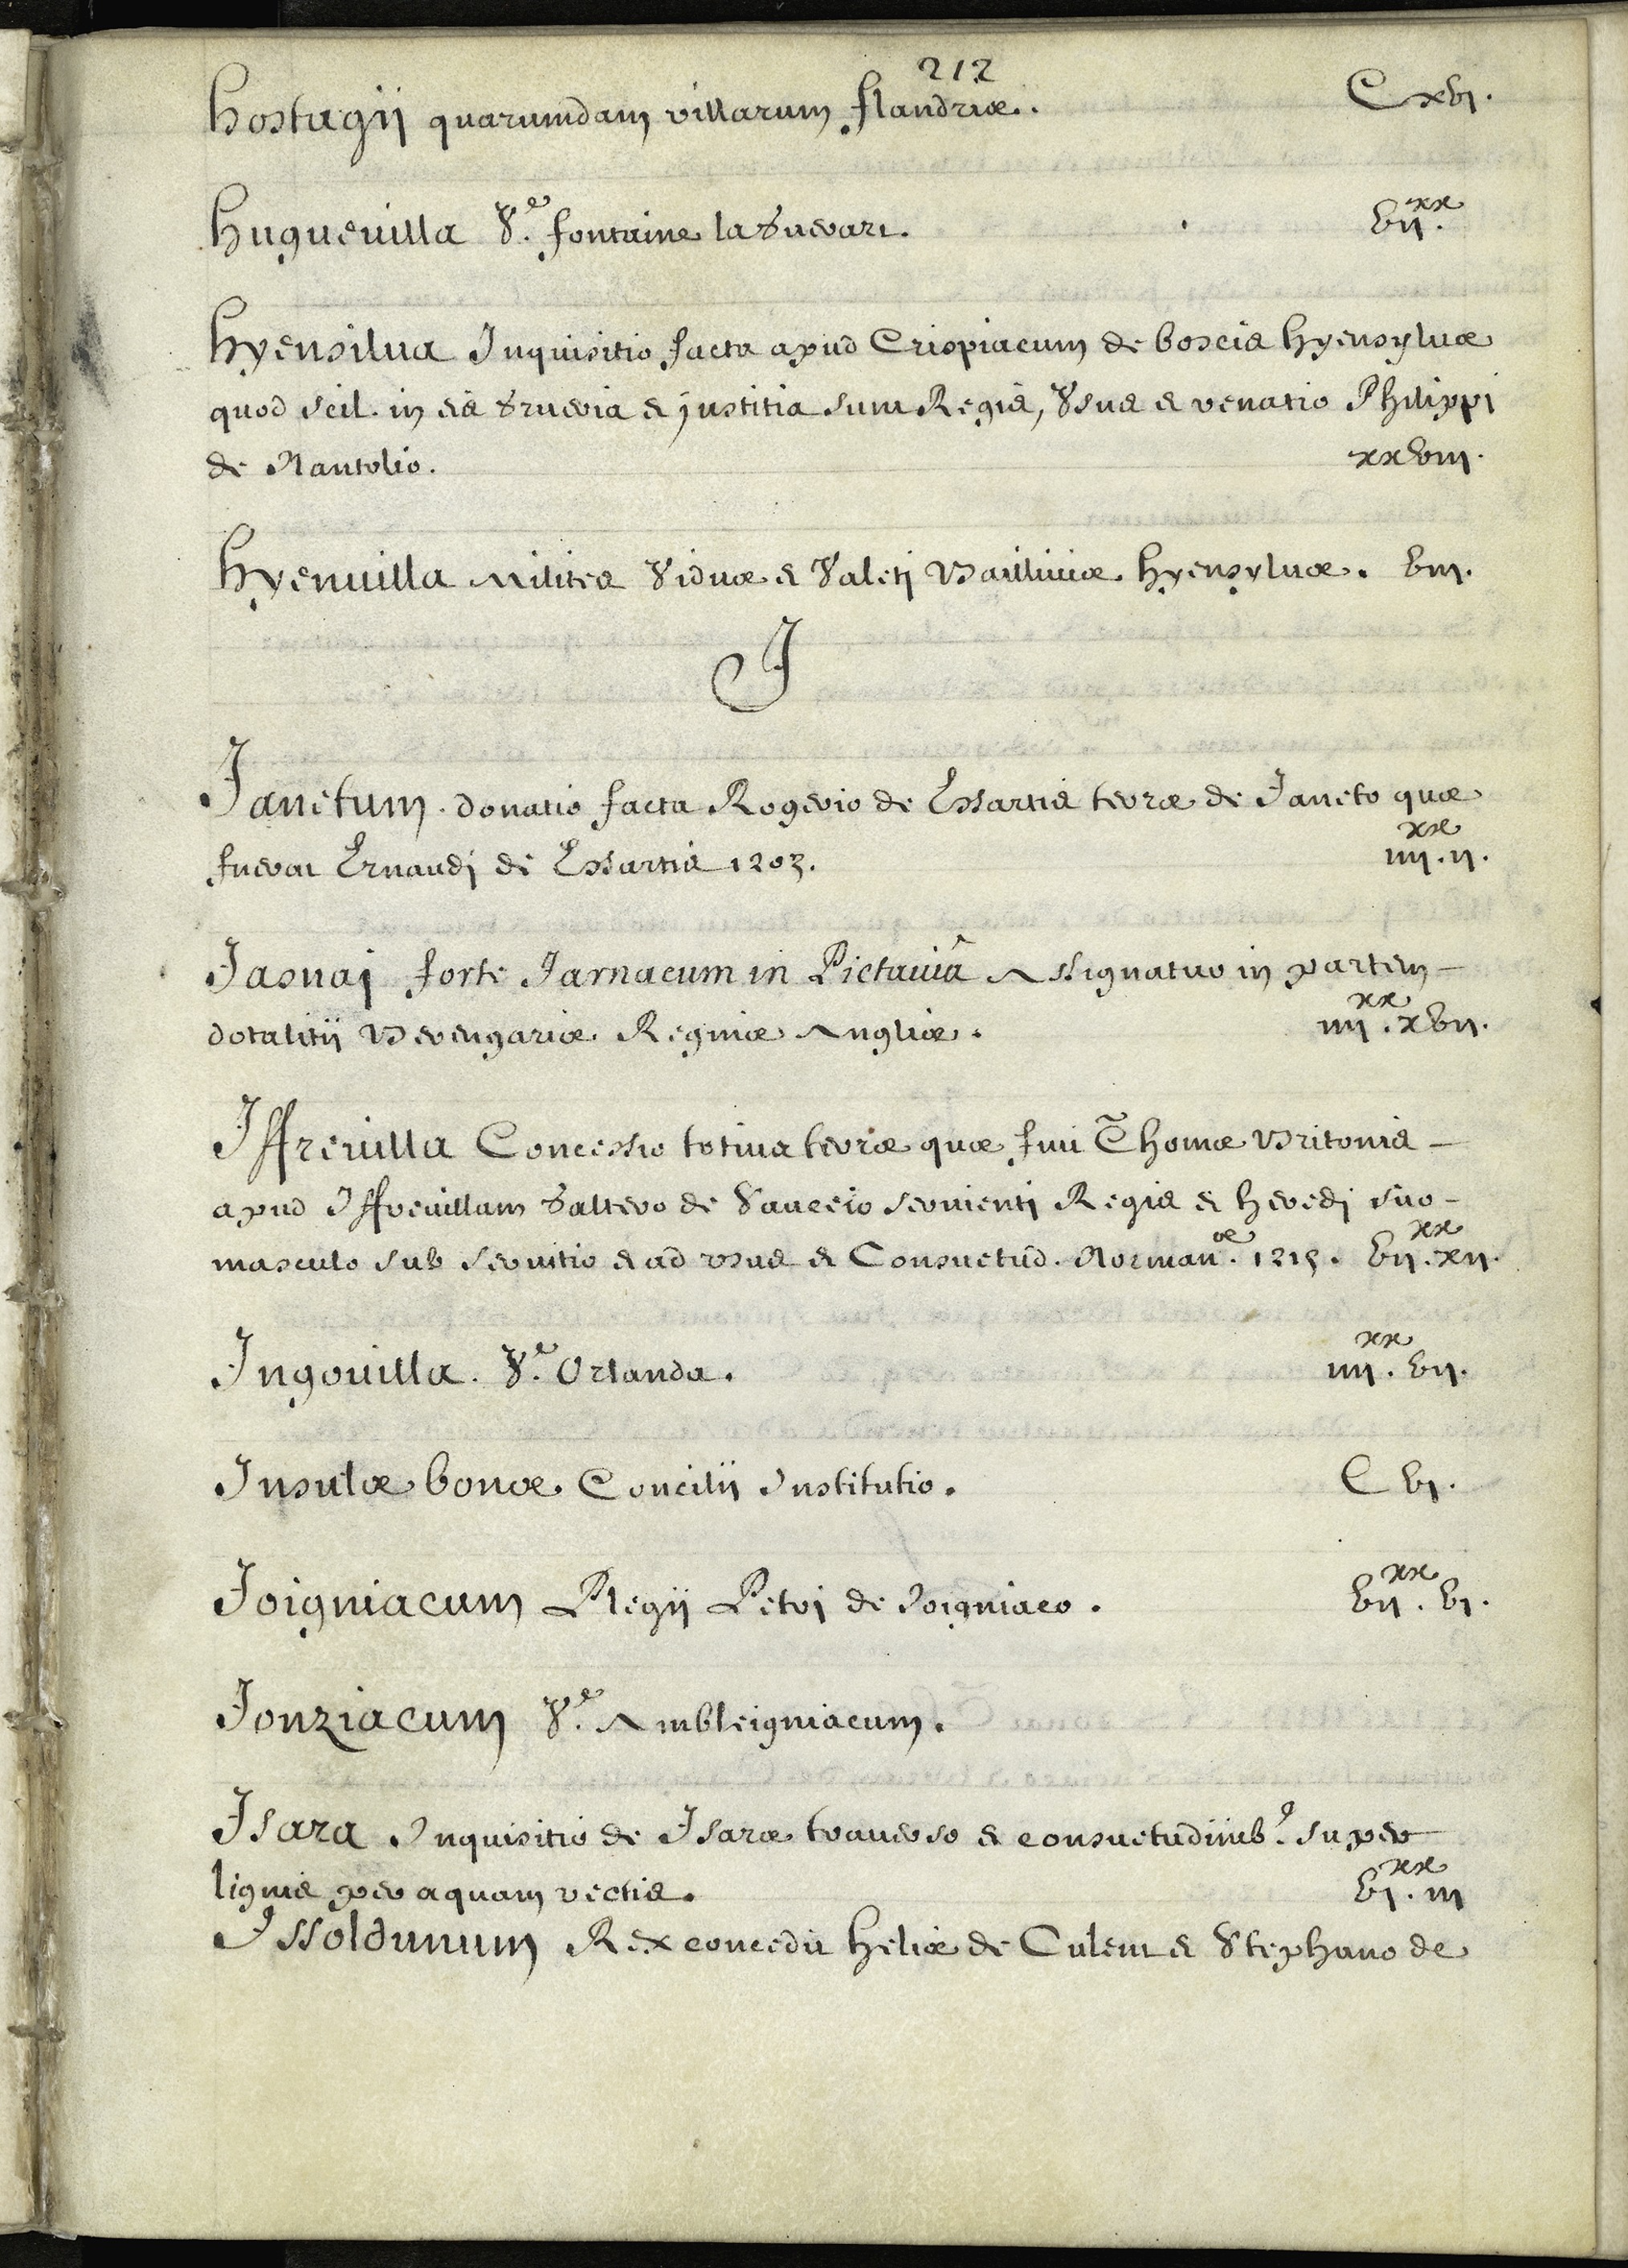 212
Hostagij quarumdam villarum flandriæ. Cxvj.
Huqueuilla Ve. fontaine la Guerart. vijxx.
Hyensilua Inquisitio facta apud Crispiacum de boscis hyensyluæ
quod scil. in eis Grueria et justitia sunt Regis, Vsus et venatio Philippi
de Nantolio. xxviij.
Hyenuilla Milites Viduæ et Valeti Bailliuiæ hyensyluæ. viij.
J
Janetum. donatio facta Rogerio de Essartis terræ de Janeto quæ
fuerat Ernaudj de Essartis 1203. iiijxx.ij.
Jasnaj forte Jarnacum in Pictauiâ Assignatur in partem
dotalitij Berengariæ Reginæ Angliæ. iiijxx.xvij.
Iffreuilla Concessio totius terræ quæ fuit Thomæ Britonis
apud Iffreuillam Galtero de Sauceio seruienti Regis et heredj suo
masculo sub seruitio et ad vsus et Consuetud. Normanniæ. 1215. vijxx.xij.
Ingouilla. Ve. Orlanda. iiijxx.vij.
Insulæ bonæ Concilij Institutio. Cvj.
Joigniacum Plegij Petrj de Joigniaco. vijxx.vj.
Jonziacum Ve. Ambleigniacum.
Isara Inquisitio de Isaræ trauerso et consuetudinib9. super
lignis per aquam vectis. vjxx.iij
Issoldunum Rex concedit heliæ de Culent et Stephano de